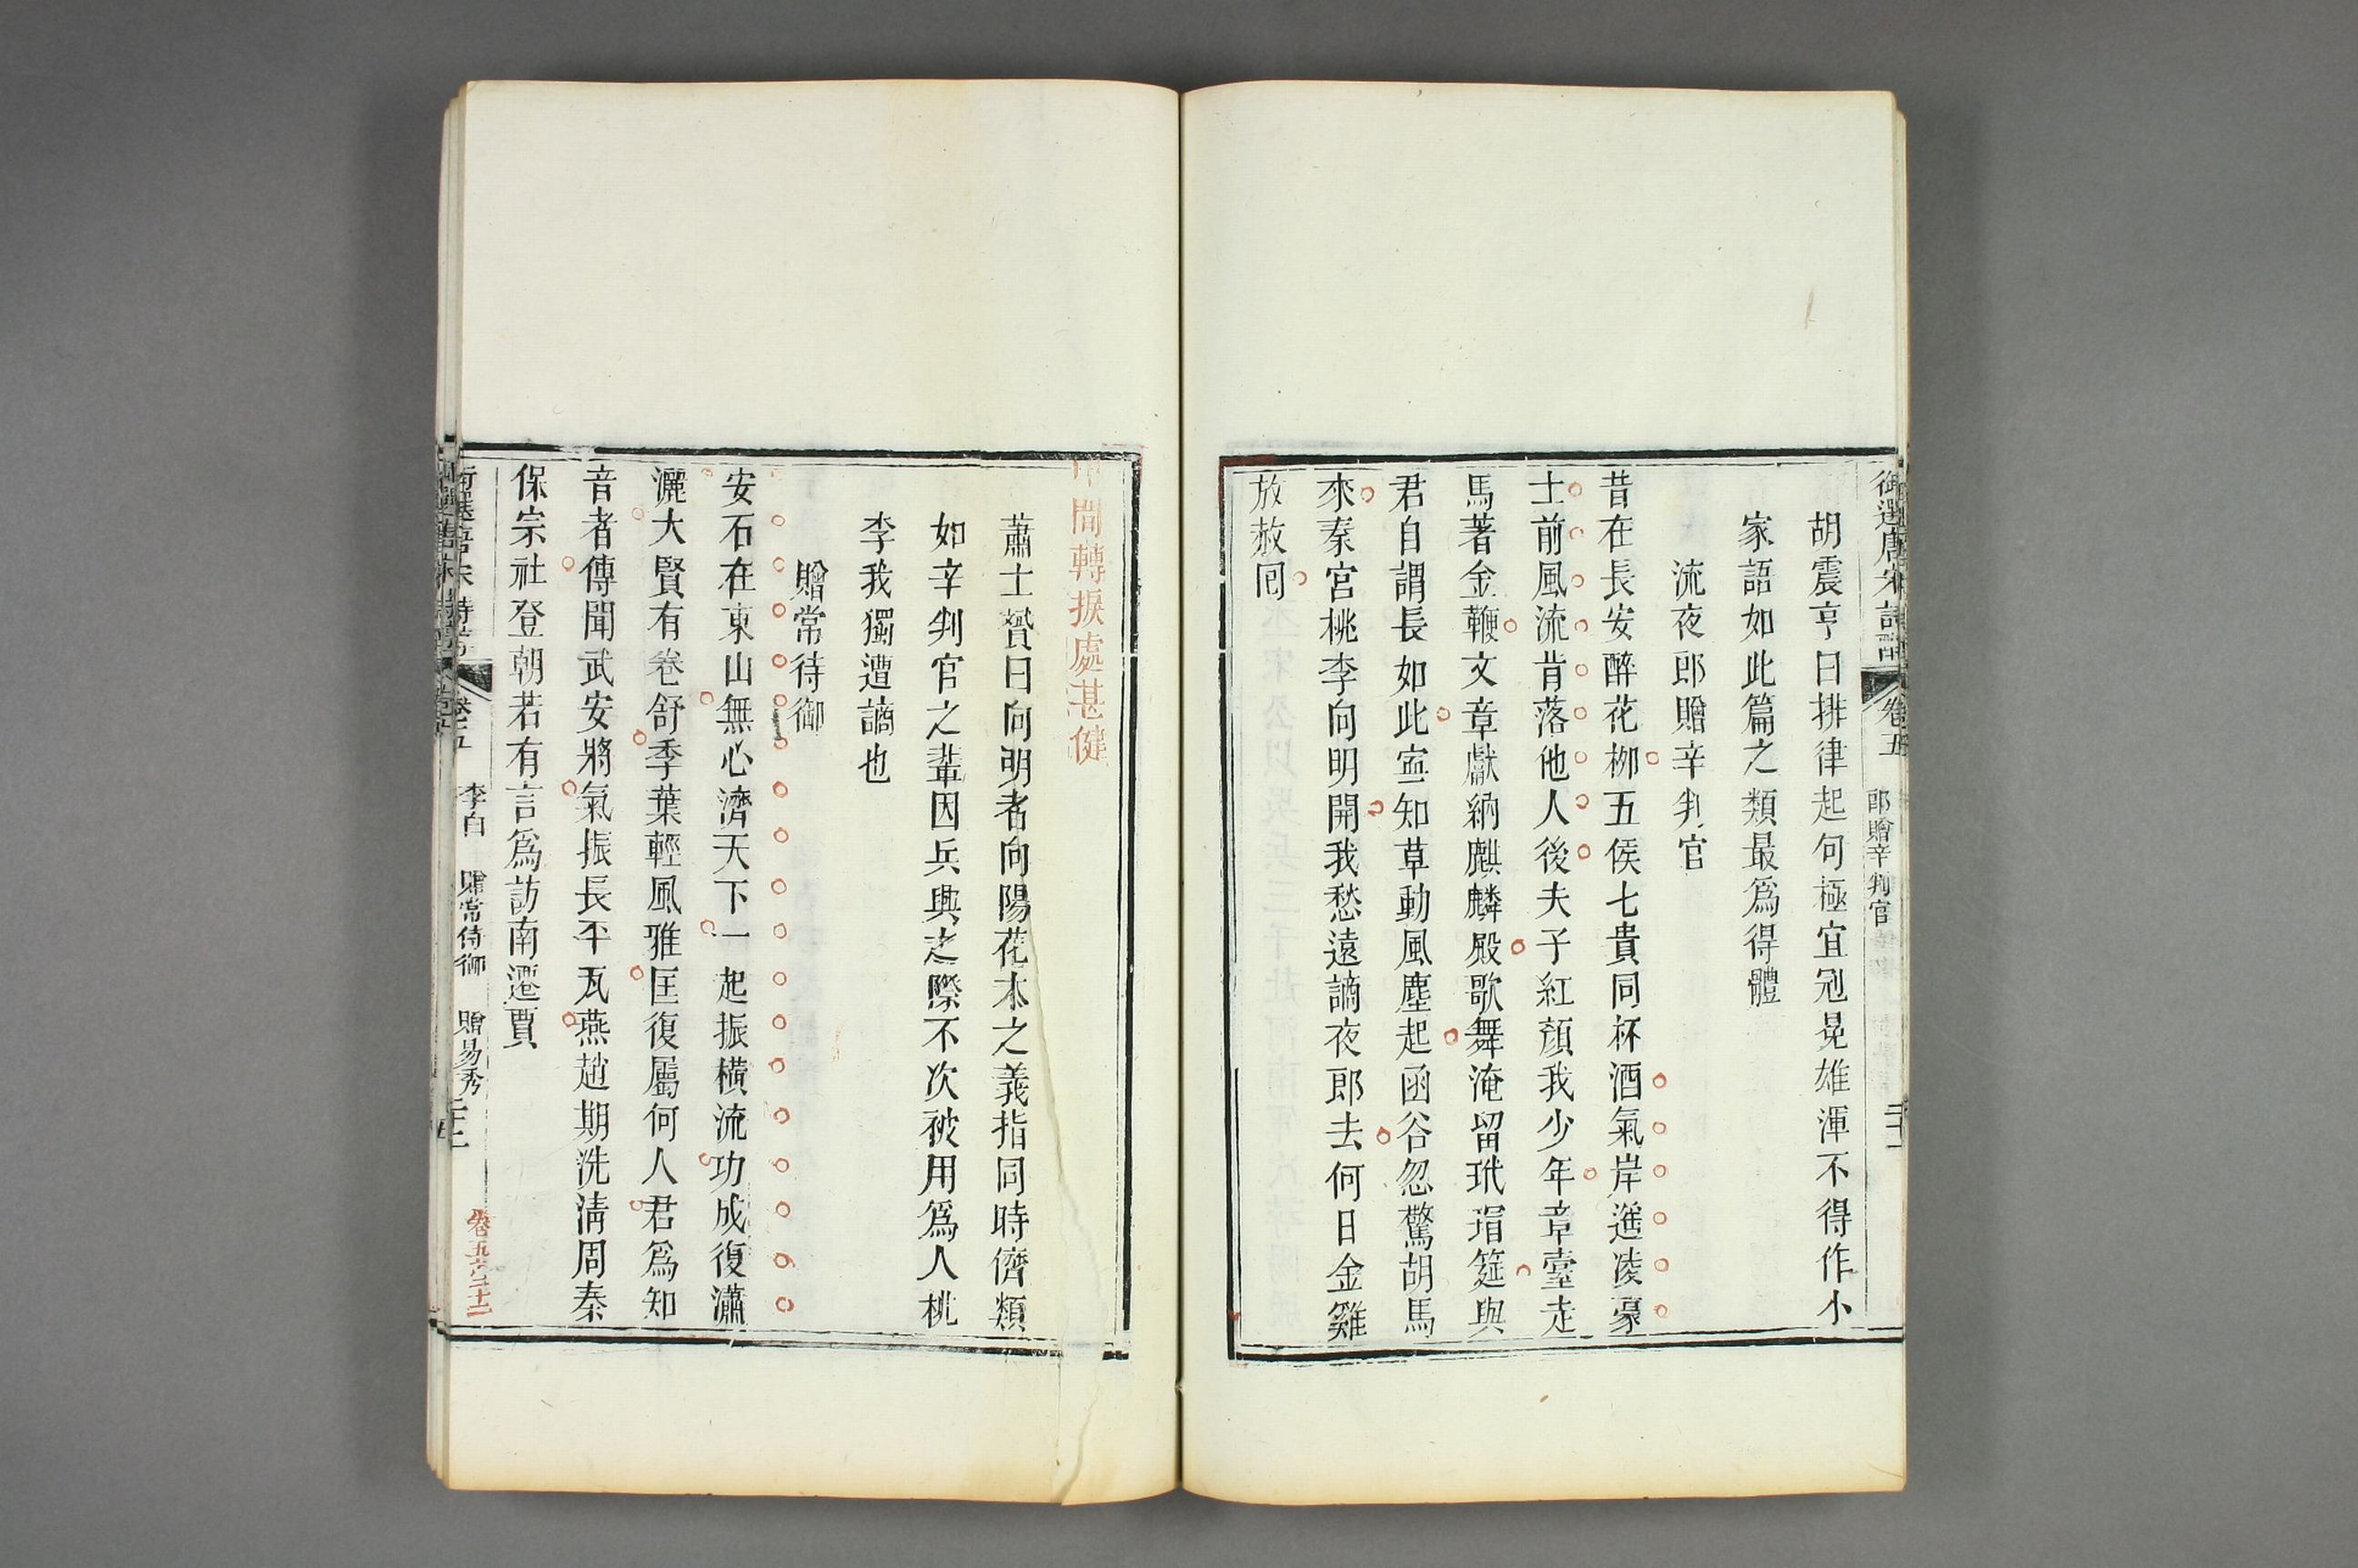 御選唐宋詩醇 卷五 郎贈辛判官 二十一
胡震亨曰排律起句極宜冠冕雄渾不得作小
家語如此篇之類最爲得體
流夜郎贈辛判官
昔在長安醉花柳五侯七貴同杯酒氣岸遥凌豪
士前風流肯落他人後夫子紅顏我少年章臺走
馬著金鞭文章獻納麒麟殿歌舞淹留玳瑁筵與
君自謂長如此寍知草動風塵起函谷忽驚胡馬
來秦宮桃李向明開我愁遠謫夜郎去何日金雞
放赦囘
中間轉捩處甚健
蕭士贇曰向明者向陽花木之義指同時儕類
如辛判官之輩因兵興之際不次被用爲人桃
李我獨遭謫也
贈常待御
安石在東山無心濟天下一起振橫流功成復瀟
灑大賢有卷舒季葉輕風雅匡復屬何人君爲知
音者傳聞武安將氣振長平瓦燕趙期洗清周秦
保宗社登朝若有言爲訪南遷賈
御選唐宋詩醇 卷五 李白 贈常侍御 贈易秀 二十二
卷五 二十二